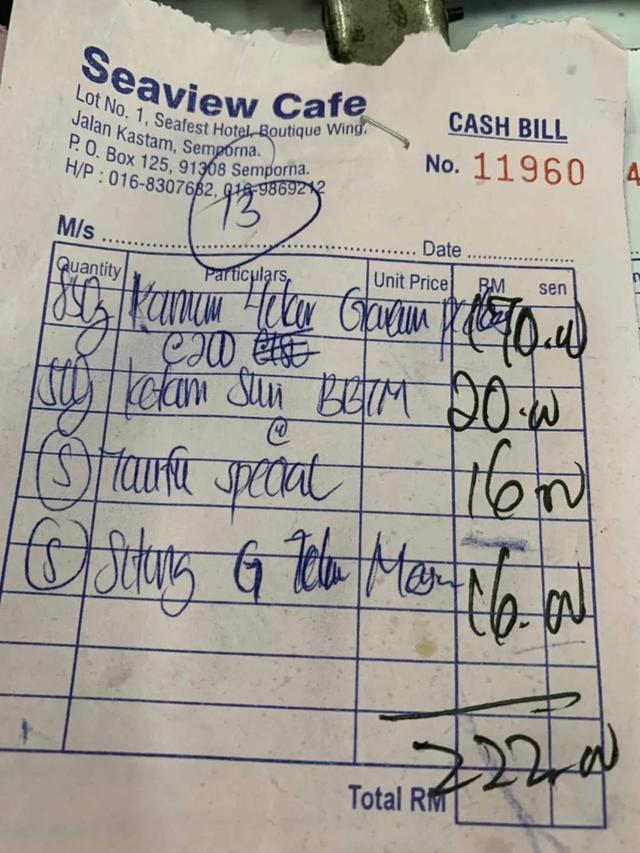 Seaview Cafe
Lot No. 1, Seafest Hotel, Boutique Wing,
Jalan Kastam, Semporna.
P. O. Box 125, 91308 Semporna.
H/P : 016-8307682, 016-9869212
CASH BILL
No. 11960
13
M/s Date
Quantity Particulars Unit Price RM sen
850g Garam 170.00
@200
500g ketam 20.00
@
S Taufu special 16 00
S Sotong G Telur Masin 16.00
222.00
Total RM